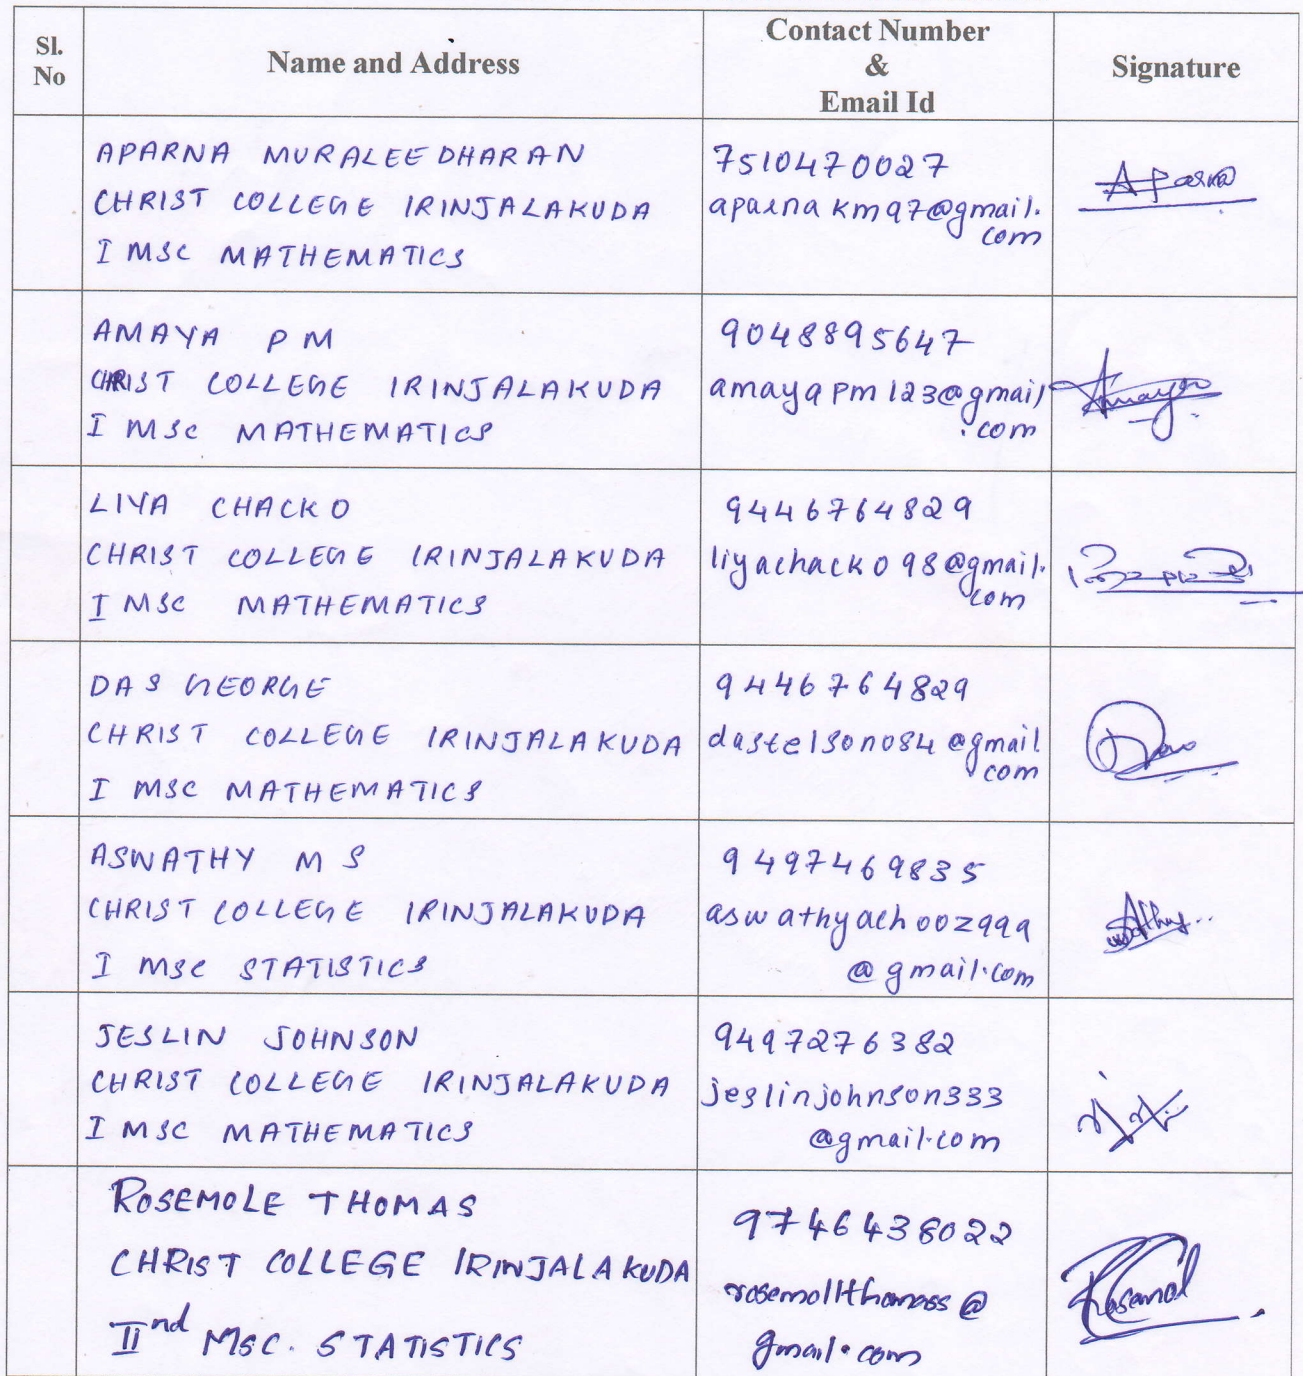 Sl.
No
Name and Address
Contact Number
&
Email Id
Signature
APARNA MURALEEDHARAN
CHRIST COLLEGE IRINJALAKUDA
I MSC MATHEMATICS
7510470027
aparnakm97@gmail.
com
Aparna
AMAYA P M
CHRIST COLLEGE IRINJALAKUDA
I MSC MATHEMATICS
9048895647
amayapm123@gmail
.com
Amaya
LIYA CHACKO
CHRIST COLLEGE IRINJALAKUDA
I MSC MATHEMATICS
9446764829
liyachacko98@gmail.
com
DAS GEORGE
CHRIST COLLEGE IRINJALAKUDA
I MSC MATHEMATICS
9446764829
dastelson084@gmail
com
ASWATHY M S
CHRIST COLLEGE IRINJALAKUDA
I MSC STATISTICS
9497469835
aswathyachooz999
@gmail.com
JESLIN JOHNSON
CHRIST COLLEGE IRINJALAKUDA
I MSC MATHEMATICS
9497276382
jeslinjohnson333
@gmail.com
ROSEMOLE THOMAS
CHRIST COLLEGE IRINJALAKUDA
IInd MSC. STATISTICS
9746438022
@
gmail.com
Rosemol